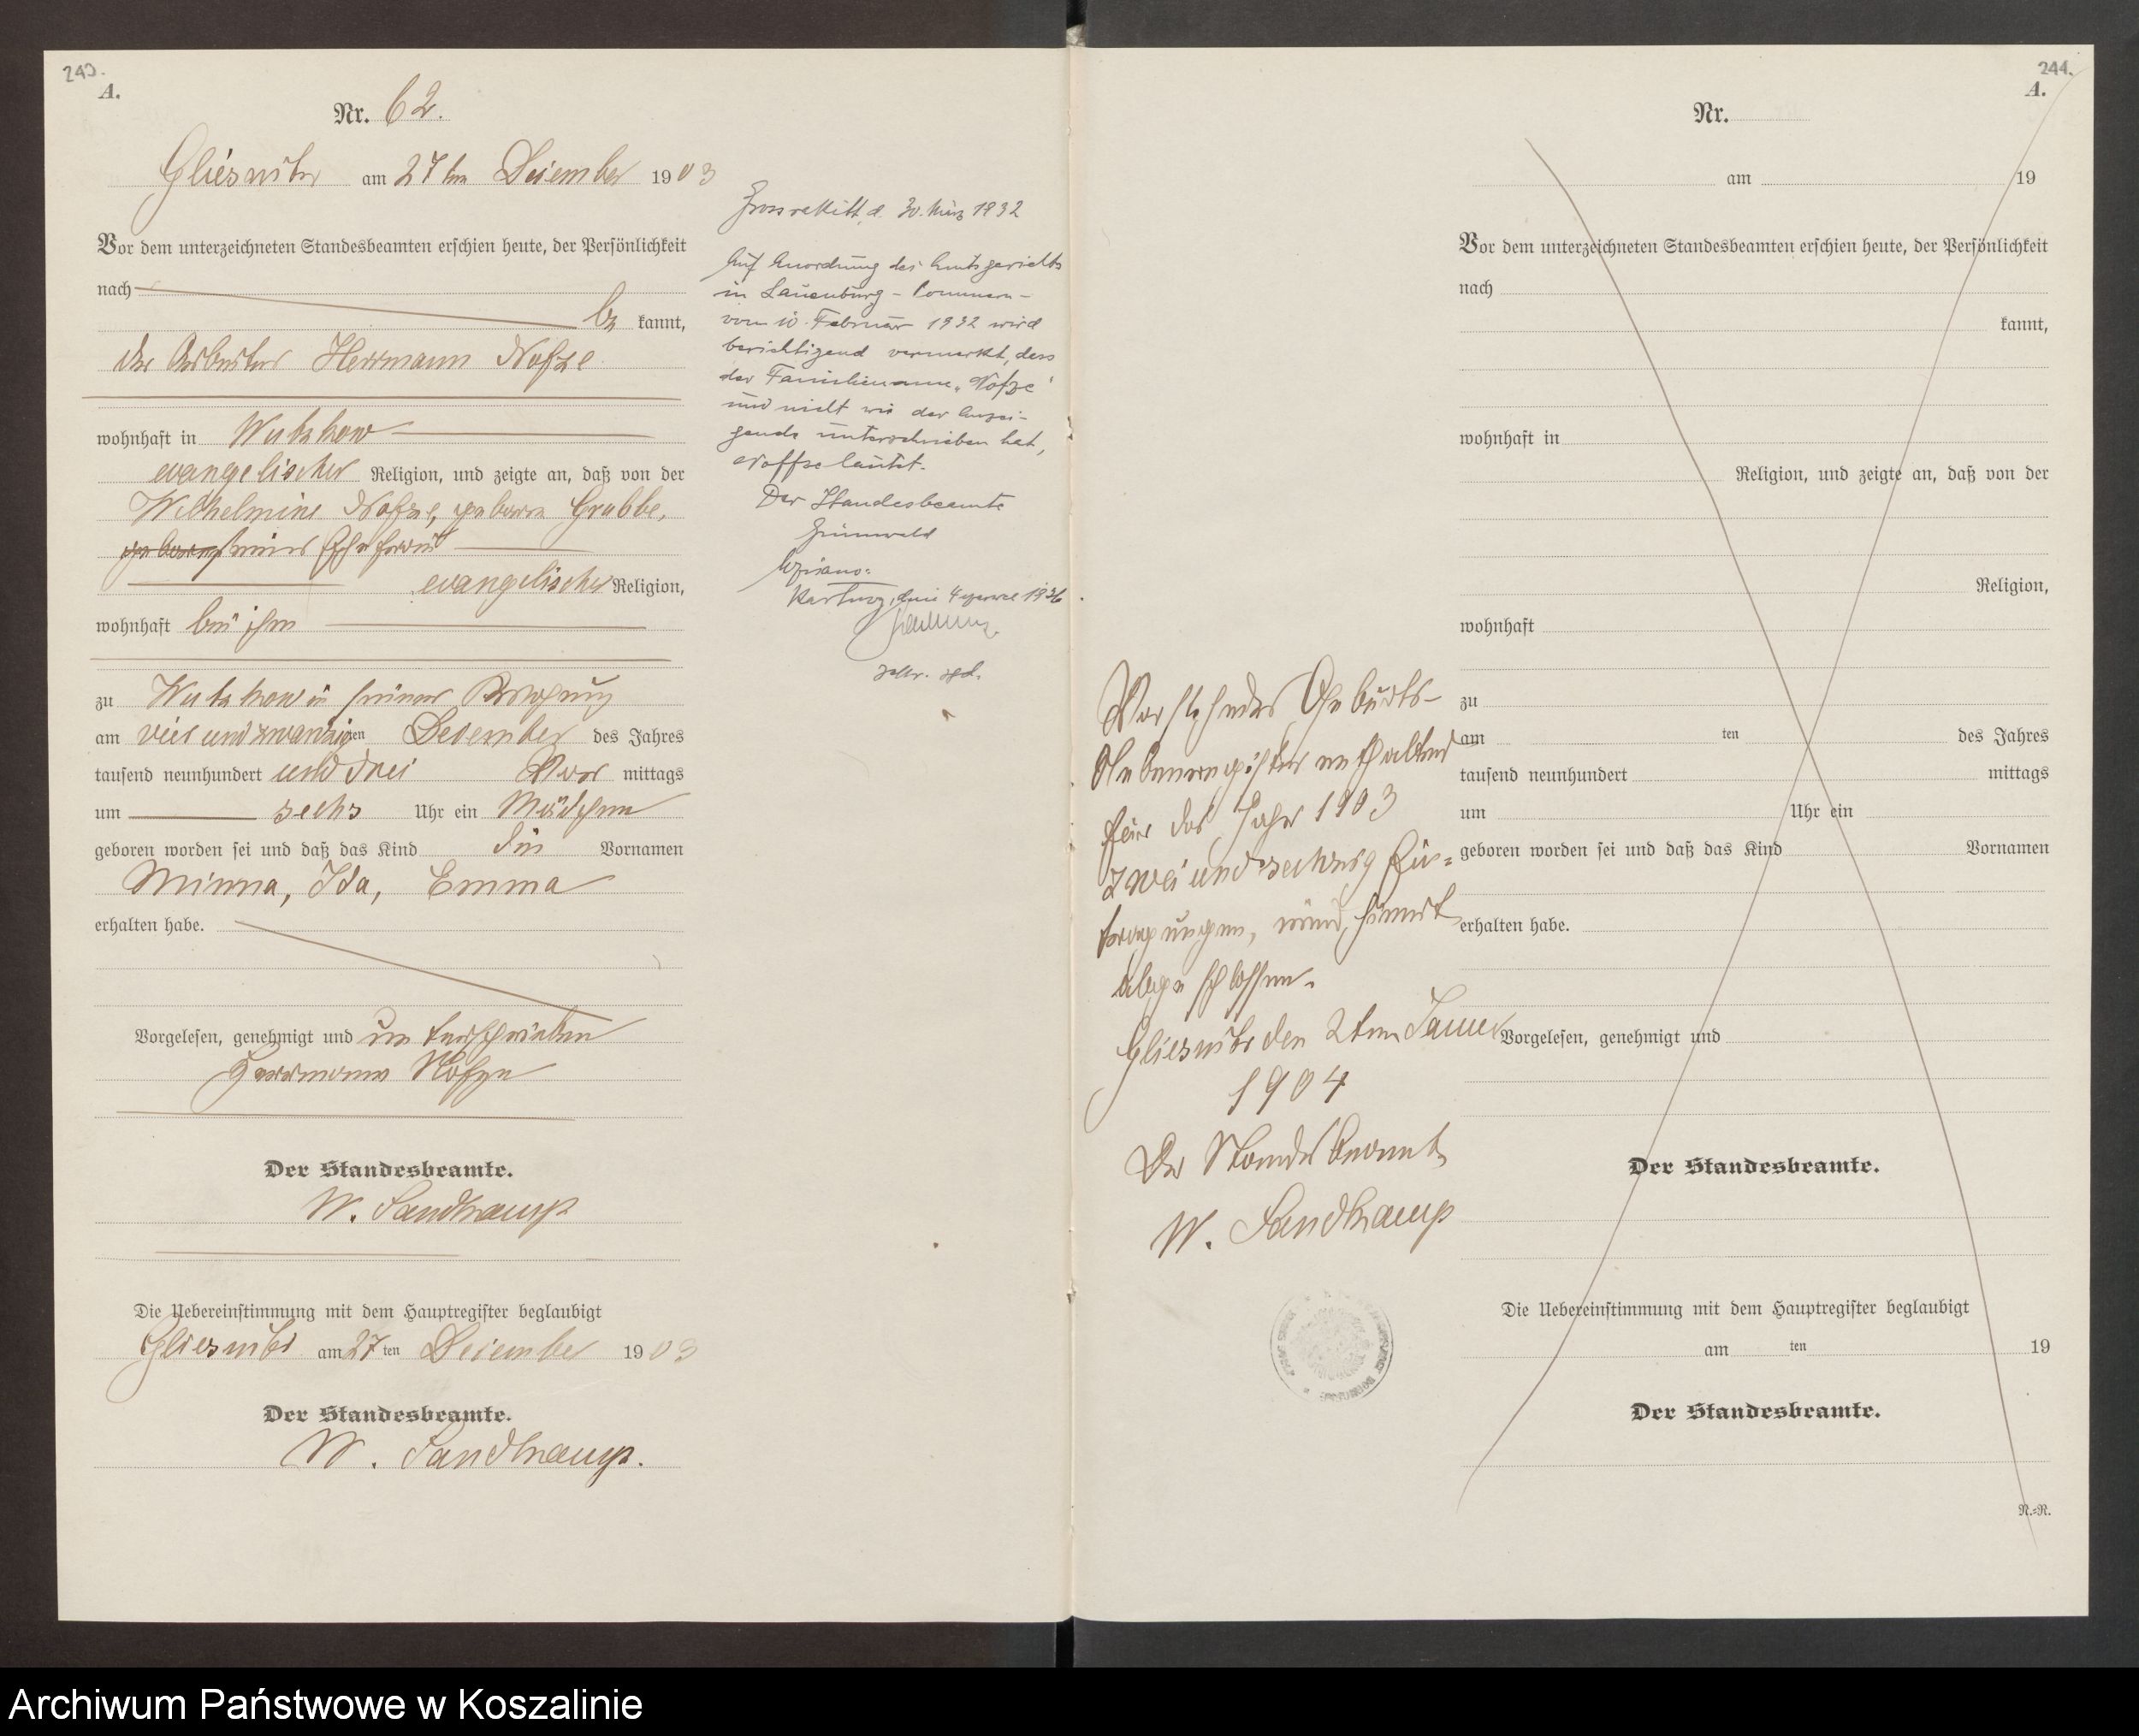 243.
A.
Nr. 62.
Gliesnitz am 27ten Dezember 1903
Vor dem unterzeichneten Standesbeamten erschien heute, der Persönlichkeit
nach
be kannt,
der Arbeiter Herrmann Nofze
wohnhaft in Wutzkow
evangelischer Religion, und zeigte an, daß von der
Wilhelmine Nofze, geborene Grubbe,
seiner Ehefrau
evangelischer Religion,
wohnhaft bei ihm
zu Wutzkow in seiner Wohnung
am vier und zwanzigten Dezember des Jahres
tausend neunhundert und drei Vor mittags
um sechs Uhr ein Mädchen
geboren worden sei und daß das Kind die Vornamen
Minna, Ida, Emma
erhalten habe.
Vorgelesen, genehmigt und unterschrieben
Herrmann Nofze
Der Standesbeamte.
W. Sandkamp
Die Uebereinstimmung mit dem Hauptregister beglaubigt
Gliesnitz am 27ten Dezember 1903
Der Standesbeamte.
W. Sandkamp.
Grossrakitt, d. 30. März 1932
Auf Anordnung des Amtsgerichts
in Lauenburg - Pommern -
vom 10. Februar 1932 wird
berichtigend vermerkt, dass
der Familienname „Nofze"
und nicht wie der Anzei-
gende unterschrieben hat,
Noffze lautet.
Der Standesbeamte
Grünwald
1936
Vorstehendes Geburts-
Nebenregister enthaltend
für das Jahr 1903
zwei und sechzig Ein-
tragungen, wird hiermit
abgeschlossen.
Gliesnitz den 2ten Januar
1904
Der Standesbeamte
W. Sandkamp
244.
A.
Nr.
am 19
Vor dem unterzeichneten Standesbeamten erschien heute, der Persönlichkeit
nach
kannt,
wohnhaft in
Religion, und zeigte an, daß von der
Religion,
wohnhaft
zu
am ten des Jahres
tausend neunhundert mittags
um Uhr ein
geboren worden sei und daß das Kind Vornamen
erhalten habe.
Vorgelesen, genehmigt und
Der Standesbeamte.
Die Uebereinstimmung mit dem Hauptregister beglaubigt
am ten 19
Der Standesbeamte.
N.=R.
Archiwum Państwowe w Koszalinie